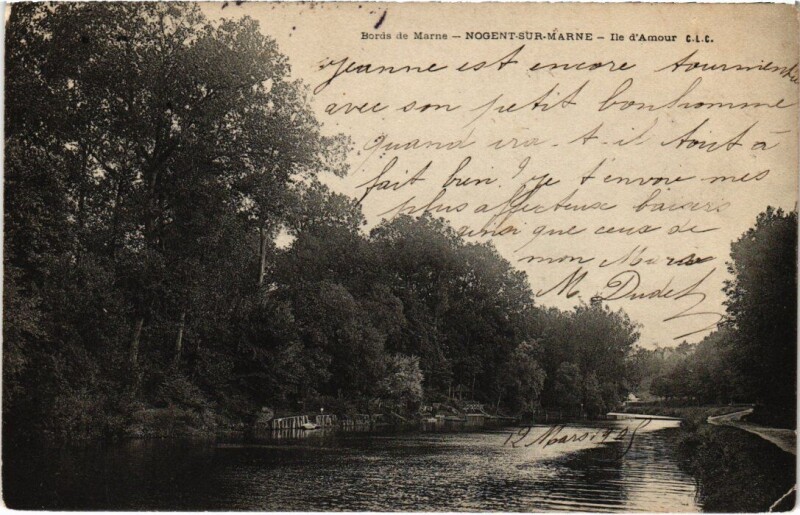 Bords de Marne — NOGENT-SUR-MARNE — Ile d'Amour C.L.C.
Jeanne est encore tourmentée
avec son petit bonhomme
quand ira-t-il tout à
fait bien. Je t'envoie mes
plus affectueux baisers
ainsi que ceux de
mon Mari
M. Dudet
12 Mars 190